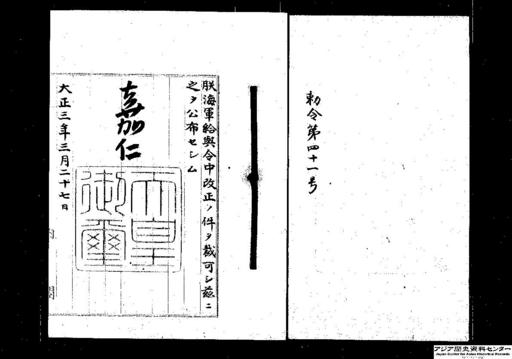 勅令第四十一号
朕海軍給與令中改正ノ件ヲ裁可シ茲ニ
之ヲ公布セシム
嘉仁
天皇
御璽
大正三年三月二十七日
内閣
アジア歴史資料センター
Japan Center for Asian Historical Records